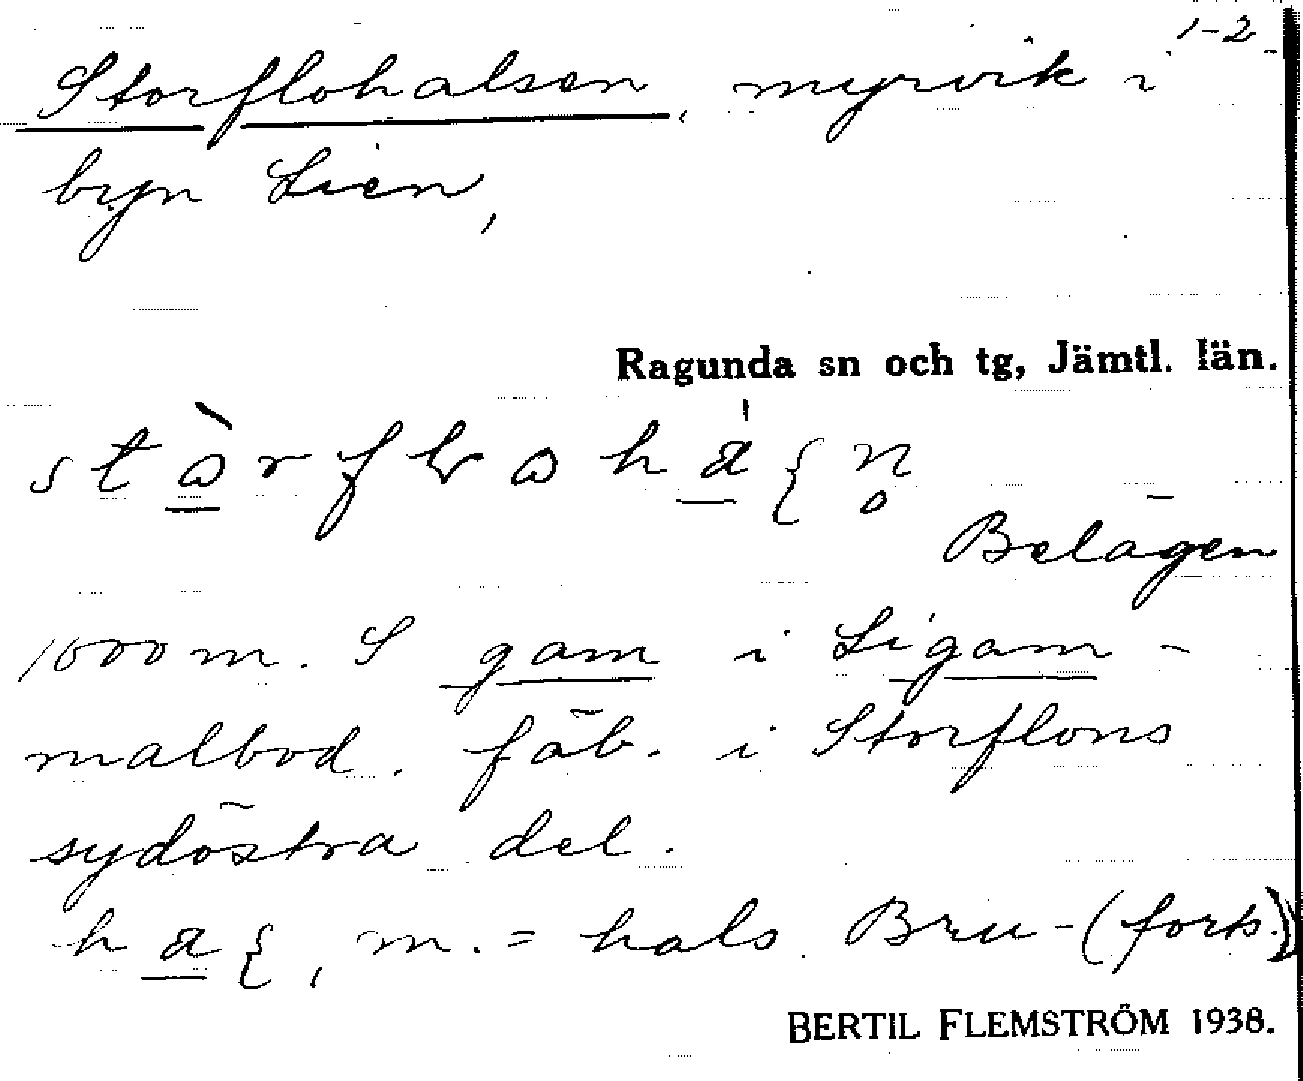 1-2
Storflohalsen, myrvik i
byn Lien,
Ragunda sn och tg, Jämtl. län.
Belägen
1000 m. S gam i Ligam-
malbod. fäb. i Storflons
sydöstra del.
m. = hals Bru-(forts.)
BERTIL FLEMSTRÖM 1938.